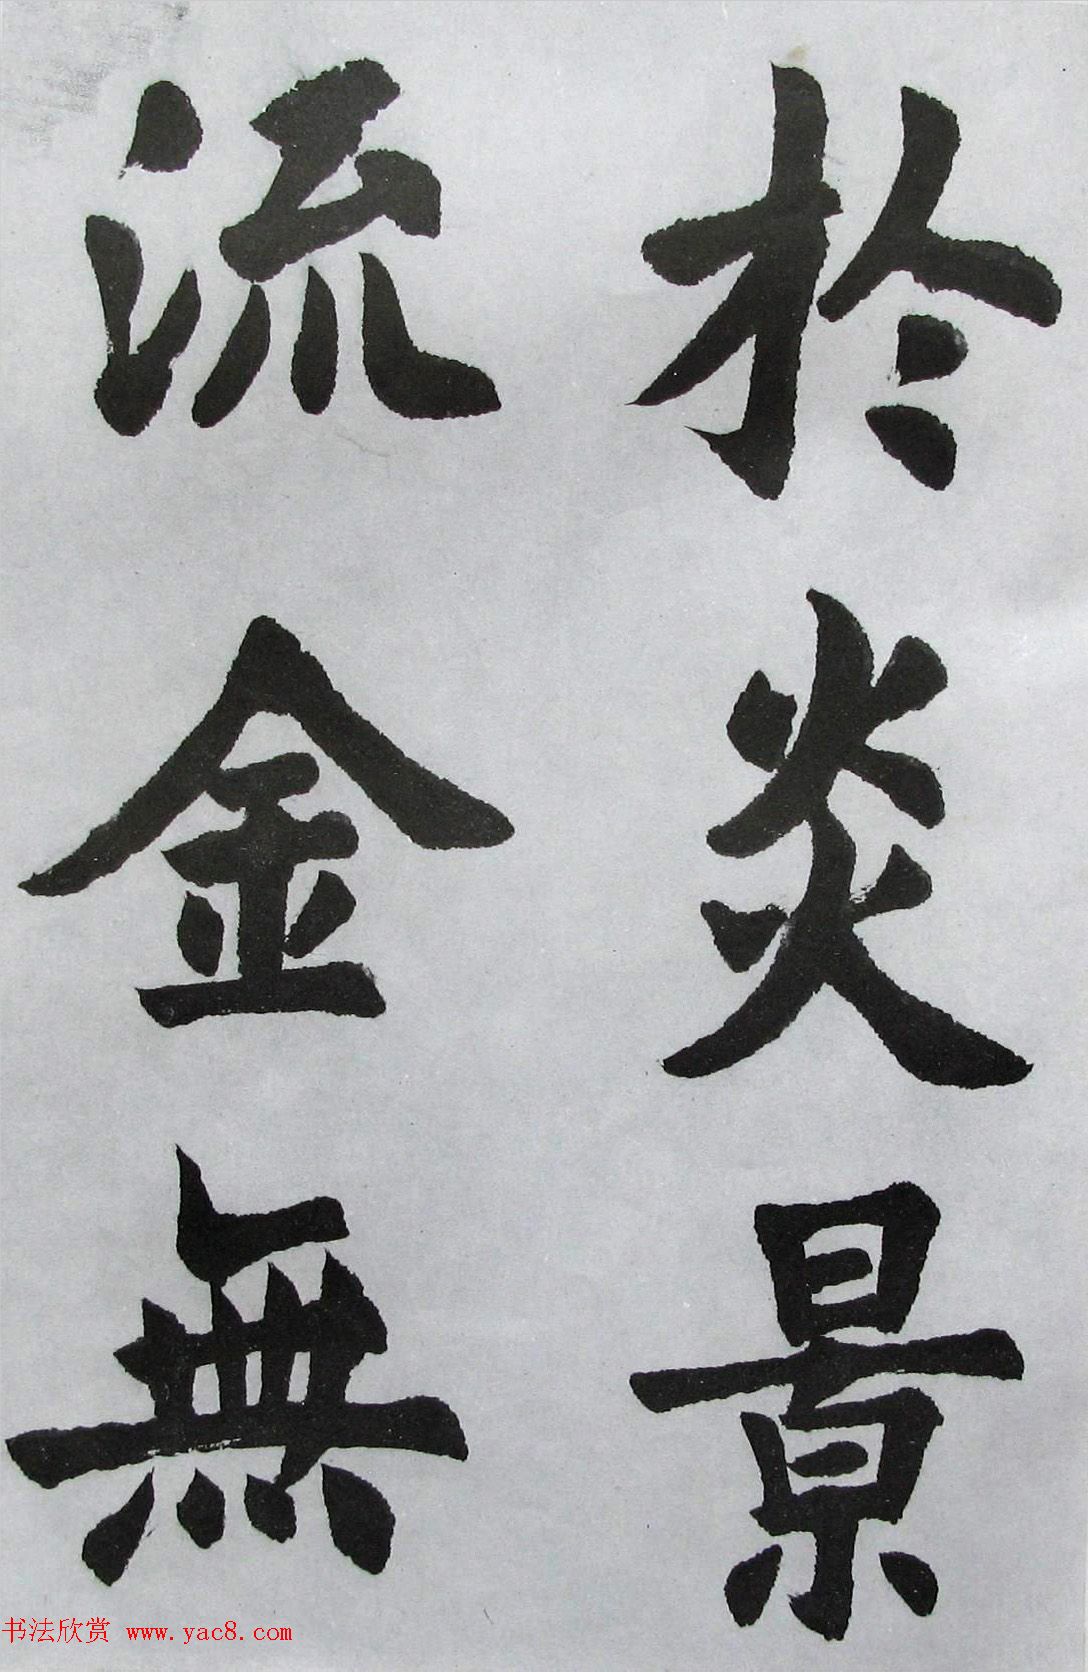 於炎景
流金無
书法欣赏 www.yac8.com